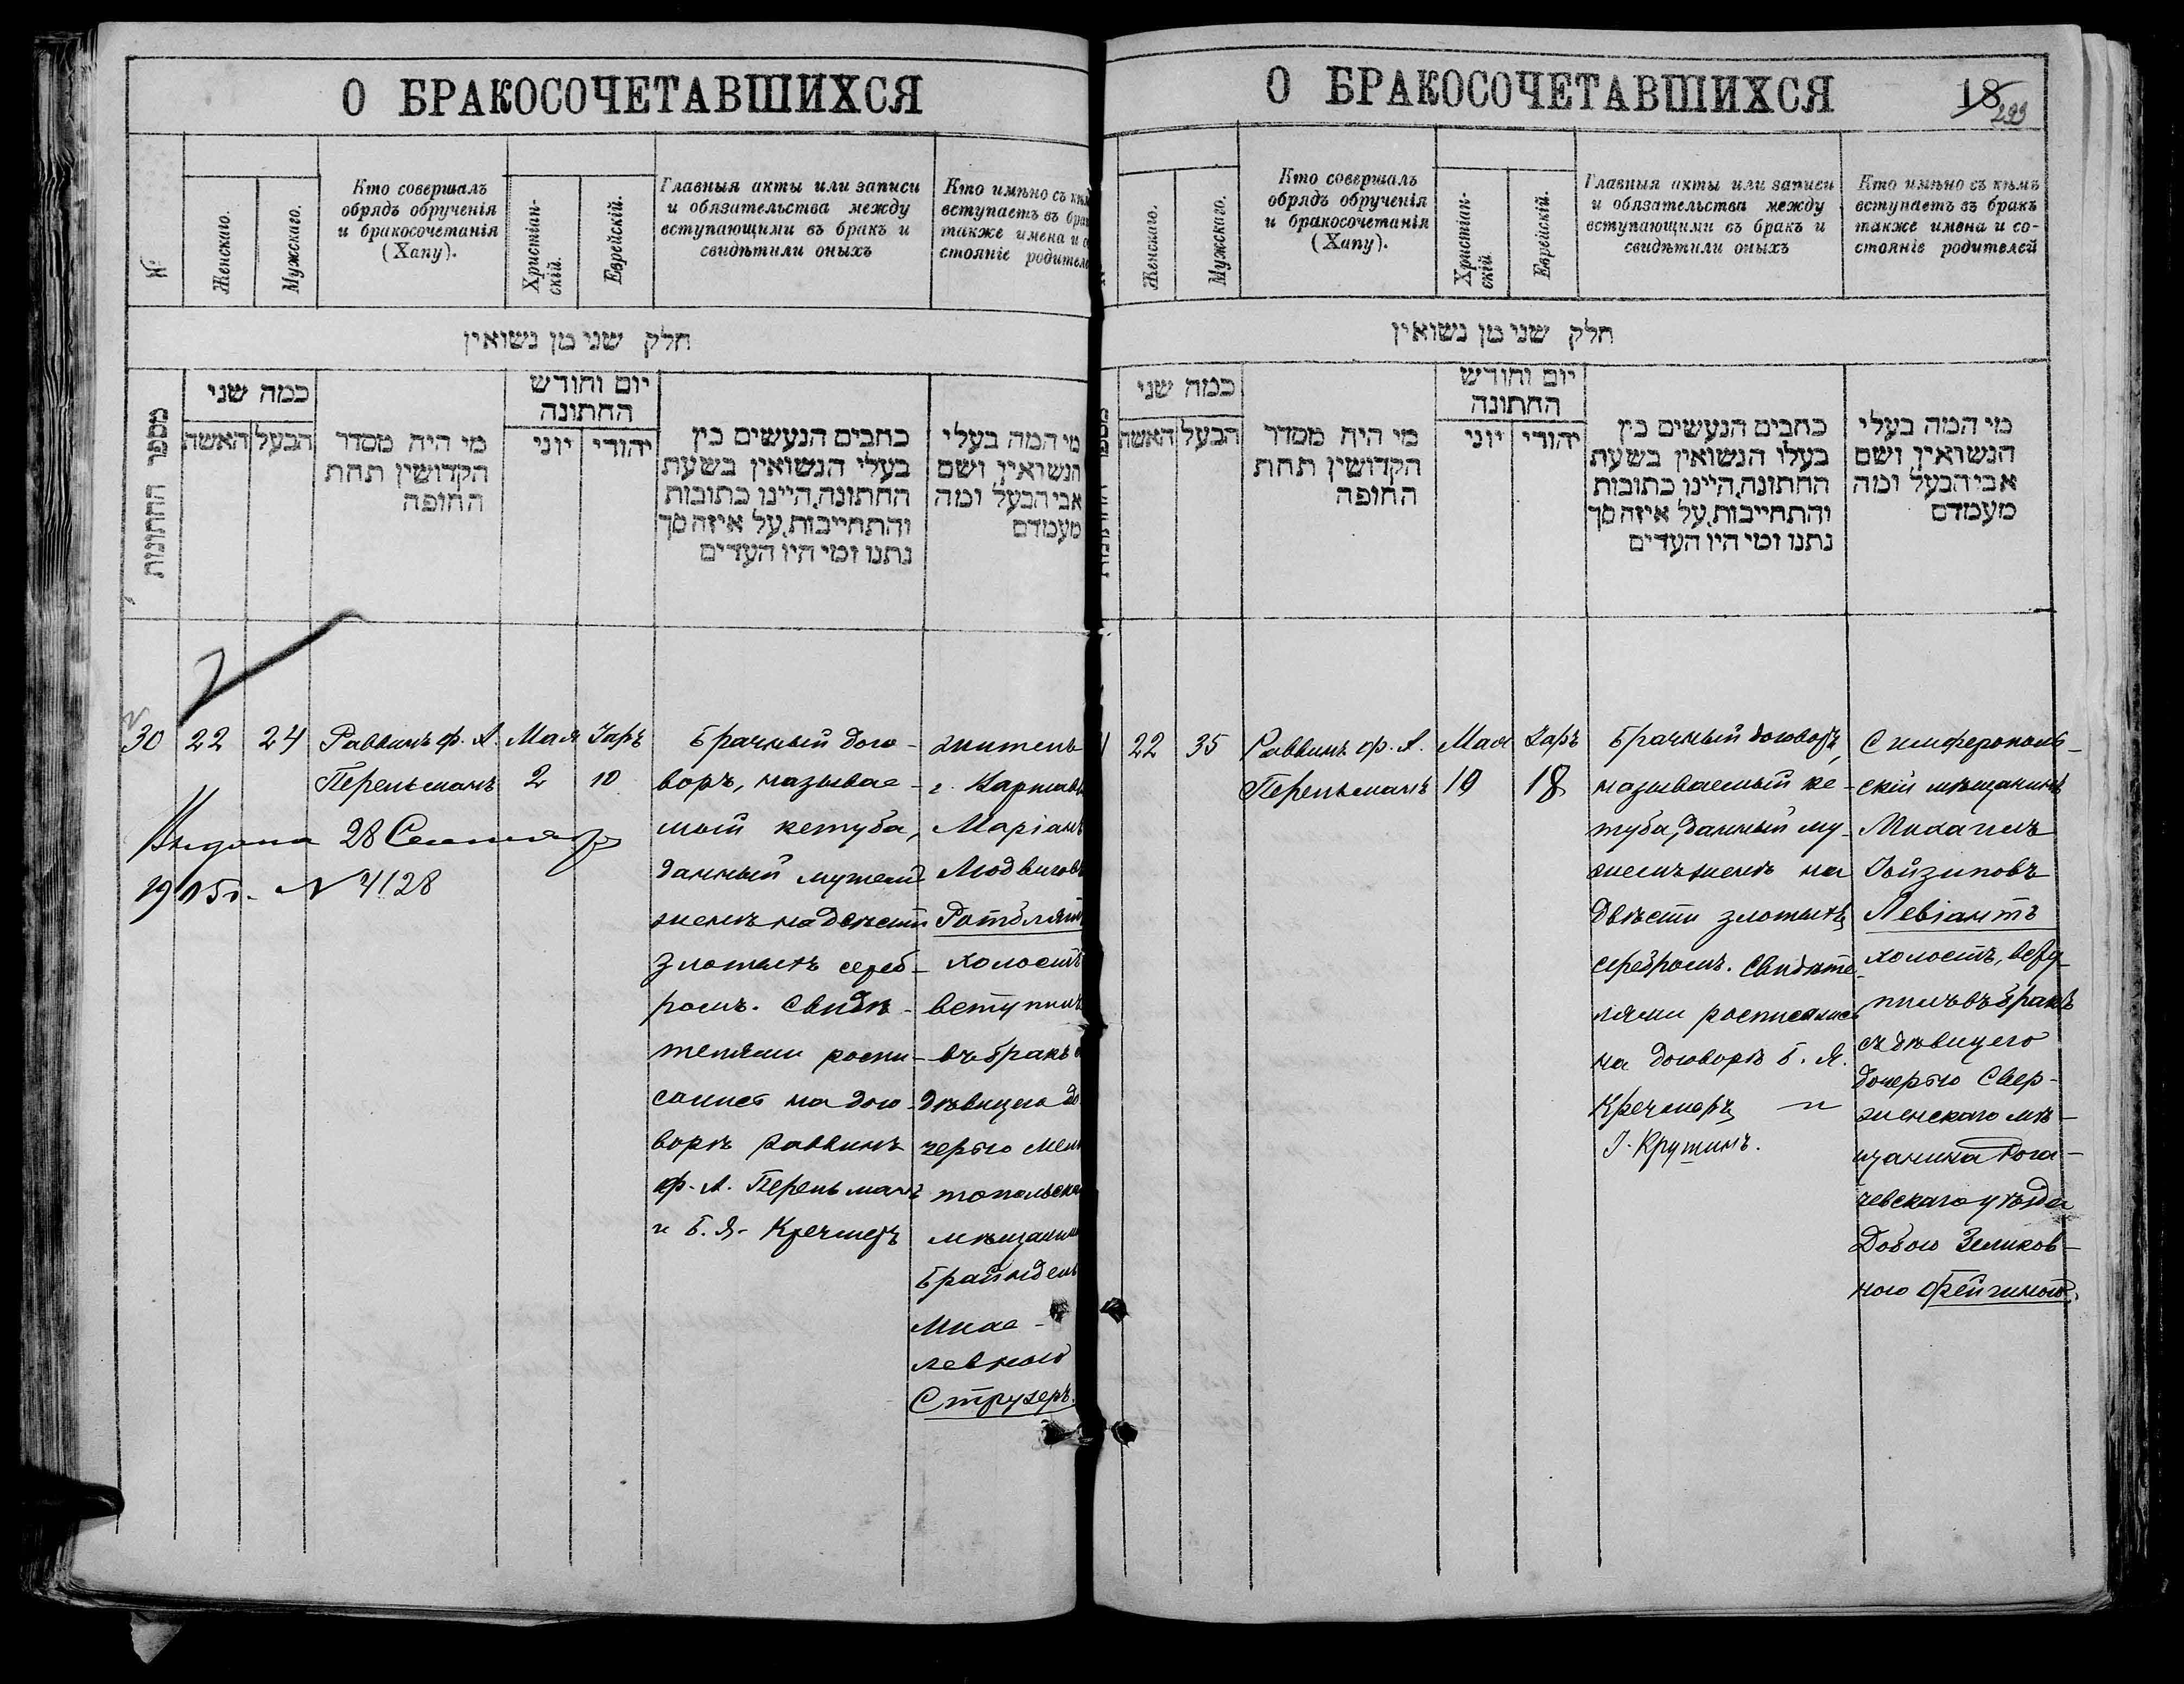 О БРАКОСОЧЕТАВШИХСЯ
№
Женскаго.
Мужскаго.
Кто совершалъ
обрядъ обрученія
и бракосочетанія
(Хапу).
Христіан-
скій.
Еврейскій.
Главныя акты или записи
и обязательства между
вступающими въ бракъ и
свидѣтили оныхъ
Кто имѣно съ
вступаетъ въ
также имена и
стояніе
חלק שני מן נשואין
מספר החתונות
כמה שני
האשה
הבעל
מי היה מסדר
הקדושין תחת
החופה
יום וחודש
החתונה
יוני
יהודי
כתבים הנעשים בין
בעלי הנשואין בשעת
החתונה, היינו כתובות
והתחייבות, על איזה סך
נתנו ומי היו העדים
מי המה בעלי
הנשואין ושם
אבי הבעל ומה
מעמדם
30
22
24
Раввинъ ф. А.
Перельманъ
Мая
2
Іаръ
10
Брачный дого-
воръ, называе-
мый кетуба,
данный мужемъ
женѣ на двѣсти
злотыхъ сереб-
ромъ. Свидѣ-
телями распи-
сались на дого-
ворѣ раввинъ
ф. А. Перельманъ
и Б. Я. Кречмеръ
житель
г.
Людвигов
холостъ
вступилъ
въ бракъ
дѣвицею до
черью Мели
топольска
мѣщанин
Брайндель
Михе-
левною
Струзеръ.
Выдана 28 Сентября
1915г. N 4128
О БРАКОСОЧЕТАВШИХСЯ
18
299
Женскаго.
Мужскаго.
Кто совершалъ
обрядъ обрученія
и бракосочетанія
(Хапу).
Христіан-
скій
Еврейскій.
Главныя акты или записи
и обязательства между
вступающими въ бракъ и
свидѣтили оныхъ
Кто имѣно съ кѣмъ
вступаетъ въ бракъ
также имена и со-
стояніе родителей
חלק שני מן נשואין
כמה שני
האשה
הבעל
מי היה מסדר
הקדושין תחת
החופה
יום וחודש
החתונה
יוני
יהודי
כתבים הנעשים בין
בעלי הנשואין בשעת
החתונה, היינו כתובות
והתחייבות, על איזה סך
נתנו ומי היו העדים
מי המה בעלי
הנשואין ושם
אבי הבעל ומה
מעמדם
22
35
Раввинъ ф. А.
Перельманъ
Мая
10
Іаръ
18
Брачный договоръ,
называемый ке-
туба, данный му-
жемъ женѣ на
двѣсти злотыхъ
серебромъ. Свидѣте-
лями росписались
на договорѣ Б. Я.
Кречмеръ и
І. Крутинъ.
Симферополь-
скій мѣщанинъ
Михаилъ
Левіантъ
холостъ, всту-
пилъ въ бракъ
съ дѣвицею
дочерью Свер-
женскаго мѣ-
щанина Рога-
чевскаго уѣзда
Добою Зеликов-
ною Фейгиною.